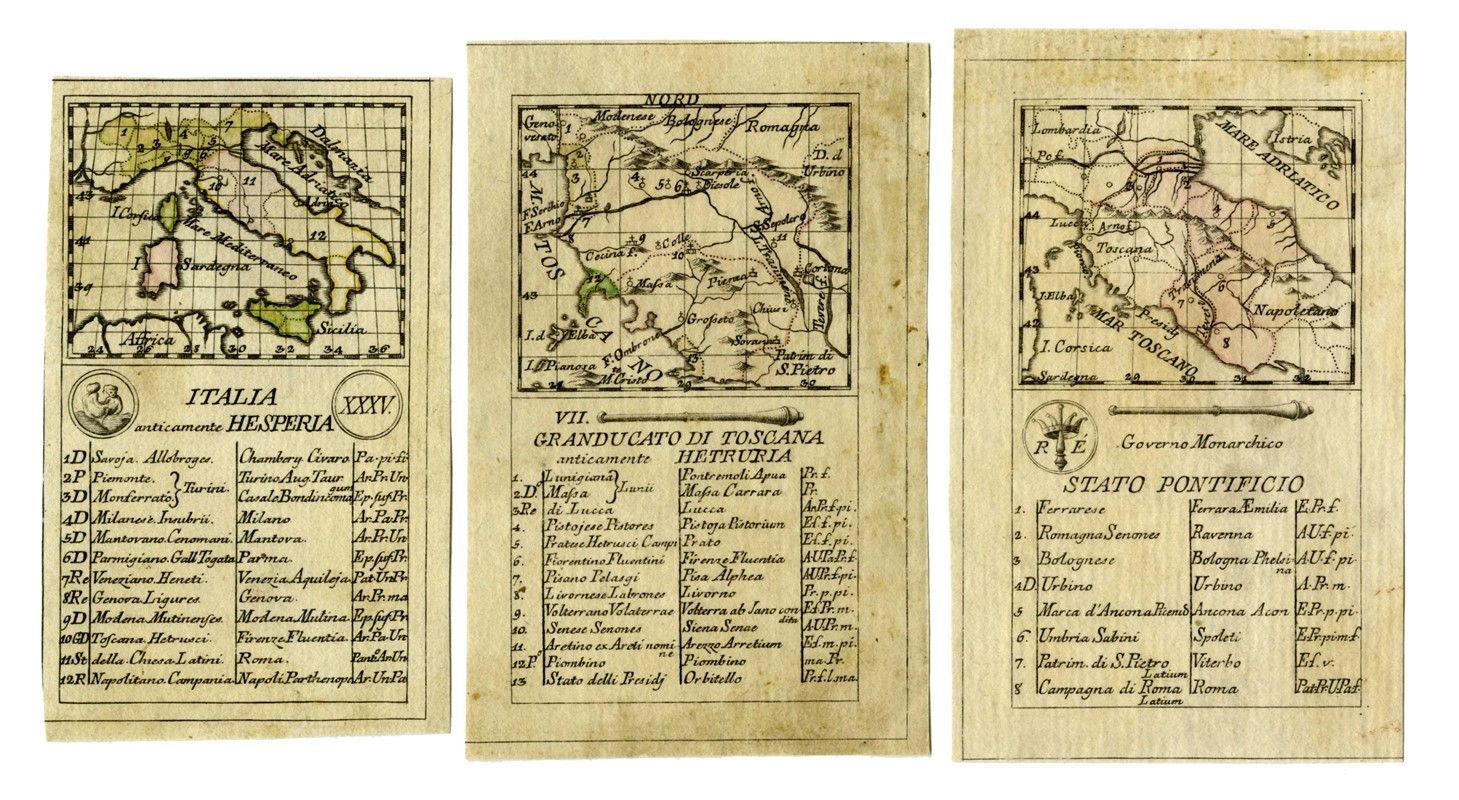 Dalmazia
Mare Adriatico
Adria
1
2
3
4
5
6
7
9
10
11
12
I. Corsica
Mare Mediterraneo
I
Sardegna
Sicilia
Affrica
43
41
39
24 26 28 30 32 34 36
ITALIA
anticamente HESPERIA
XXXV.
1D Savoja. Allobroges. Chambery. Civaro Pa·pi·fi
2P Piemonte. Turino Aug. Taur Ar.Pr.Un
Turini.
3D Monferrato. Casale Bondincoma Ep·suf·Pr.
gum
4D Milanese. Insubrii. Milano Ar.Pa.Pr.
5D Mantovano. Cenomani. Mantova. Ar.Pr.Un
6D Parmigiano. Gall Togata Parma. Ep·suf·Pr.
7Re Veneziano. Heneti. Venezia. Aquileja. Pat·Un·Pr
8Re Genova. Ligures. Genova. Ar.Pr.ma
9D Modena. Mutinenses. Modena. Mutina. Ep·suf·Pr
10GD Toscana. Hetrusci. Firenze. Fluentia. Ar.Pa.Un
11St della Chiesa. Latini. Roma.
12R Napolitano. Campania. Napoli. Parthenope Ar.Un.Pa
NORD
Geno
vesato
Modenese
Bolognese
Romagna
D. d
Urbino
Scarperia
Fiesole
44
F. Serchio
F. Arno
S. Sepolcro
Cecina f.
Colle
Massa
Pienza
Cortona
Chiusi
Tevere F.
43
MTOSCANO
I. d'Elba
Grosseto
F. Ombrone
Sovana
Patrim. di
S. Pietro
I. Pianosa
M. Cristo
29 30
VII.
GRANDUCATO DI TOSCANA
anticamente HETRURIA
1. Lunigiana Pontremoli Apua Pr. f.
Lunii
2.D° Massa Massa Carrara Pr.
3Re di Lucca Lucca Ar.Pr.f.pi.
4. Pistojese Pistores Pistoja Pistorium E.f.f. pi.
5. Pratese Hetrusci Campi Prato E.f.f. pi.
6. Fiorentino Fluentini Firenze Fluentia A.U.Pa.Pr.f
7. Pisano Pelasgi Pisa Alphea A.U.Pr.f.pi.
8. Livornese Labrones Livorno Pr.p.pi.
9. Volterrano Volaterrae Volterra ab Jano con E.f.Pr.m.
dita
10. Senese Senones Siena Senae A.U.Pr.m.
11. Aretino ex Areti nomi Arezzo Arretium E.f.m.pi.
ne
12.P° Piombino Piombino ma·Pr.
13 Stato delli Presidj Orbitello Pr.f.l.ma.
Lombardia
Po f.
MARE ADRIATICO
Istria
44
Lucca
Arno f.
Toscana
43
I. Elba
Trasimeno
Napoletano
42
Presidj
MAR TOSCANO
I. Corsica
Sardegna
29 30 31 32
R É
Governo Monarchico
STATO PONTIFICIO
1. Ferrarese Ferrara Æmilia E.Pr.f.
2. Romagna Senones Ravenna A.U·f·pi·
3 Bolognese Bologna Phelsi A.U·f·pi.
na
4D. Urbino Urbino A·Pr.m.
5 Marca d'Ancona Picenũ Ancona Acon E.Pr.p.pi·
6. Umbria Sabini Spoleti E.Pr.pi·m·f.
7. Patrim. di S. Pietro Viterbo E.f.v.
Latium
8 Campagna di Roma Roma Pat·Pr.U.Pa.f.
Latium